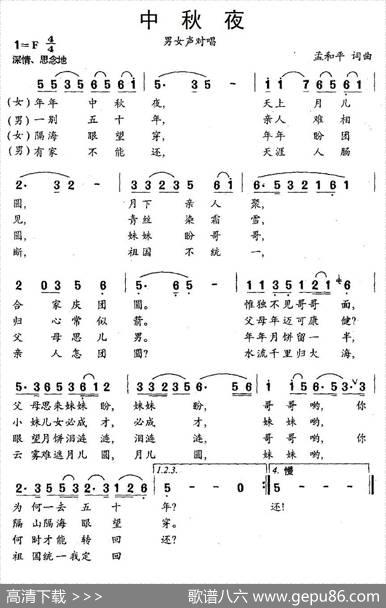 中秋夜
男女声对唱
1=F 4/4
深情、思念地
孟和平 词曲
5 5 3 5 6 5 1 6 5 · 1 1 7 6 5 6 1
(女)年年 中秋 夜, 天上 月儿
(男)一别 五十 年, 亲人 难相
(女)隔海 眼望 穿, 年年 盼团
(男)有家 不能 还, 天涯 人肠
2 · 3 2 - 3 1 2 3 5 6 1 6 · 3 2 1 2 1 6 1
圆, 月下 亲人 聚,
见, 青丝 染霜 雪,
圆, 妹妹 盼哥 哥,
断, 祖国 不统 一,
2 0 3 5 6 5 · 6 5 - 1 1 3 5 1 2 1 6
合 家庆团 圆。 惟独不见哥哥 面,
归 心常似 箭。 父母年迈可康 健?
父 母思儿 男。 年年月饼留一 半,
亲 人怎团 圆? 水流千里归大 海,
父母思来妹妹 盼, 妹妹 盼, 哥哥 哟,你
小妹儿女必成 才, 必成 才, 妹妹 哟,
眼望月饼泪涟 涟, 泪涟 涟, 哥哥 哟,你
云雾难遮月儿 圆, 月儿 圆, 妹妹 哟,
1.2.3. 4. 慢
为何一去五十 年? 还!
隔山隔海眼望 穿。
何时才能转回 还?
祖国统一我定 回
高清下载 >>>
歌谱八六 www.gepu86.com